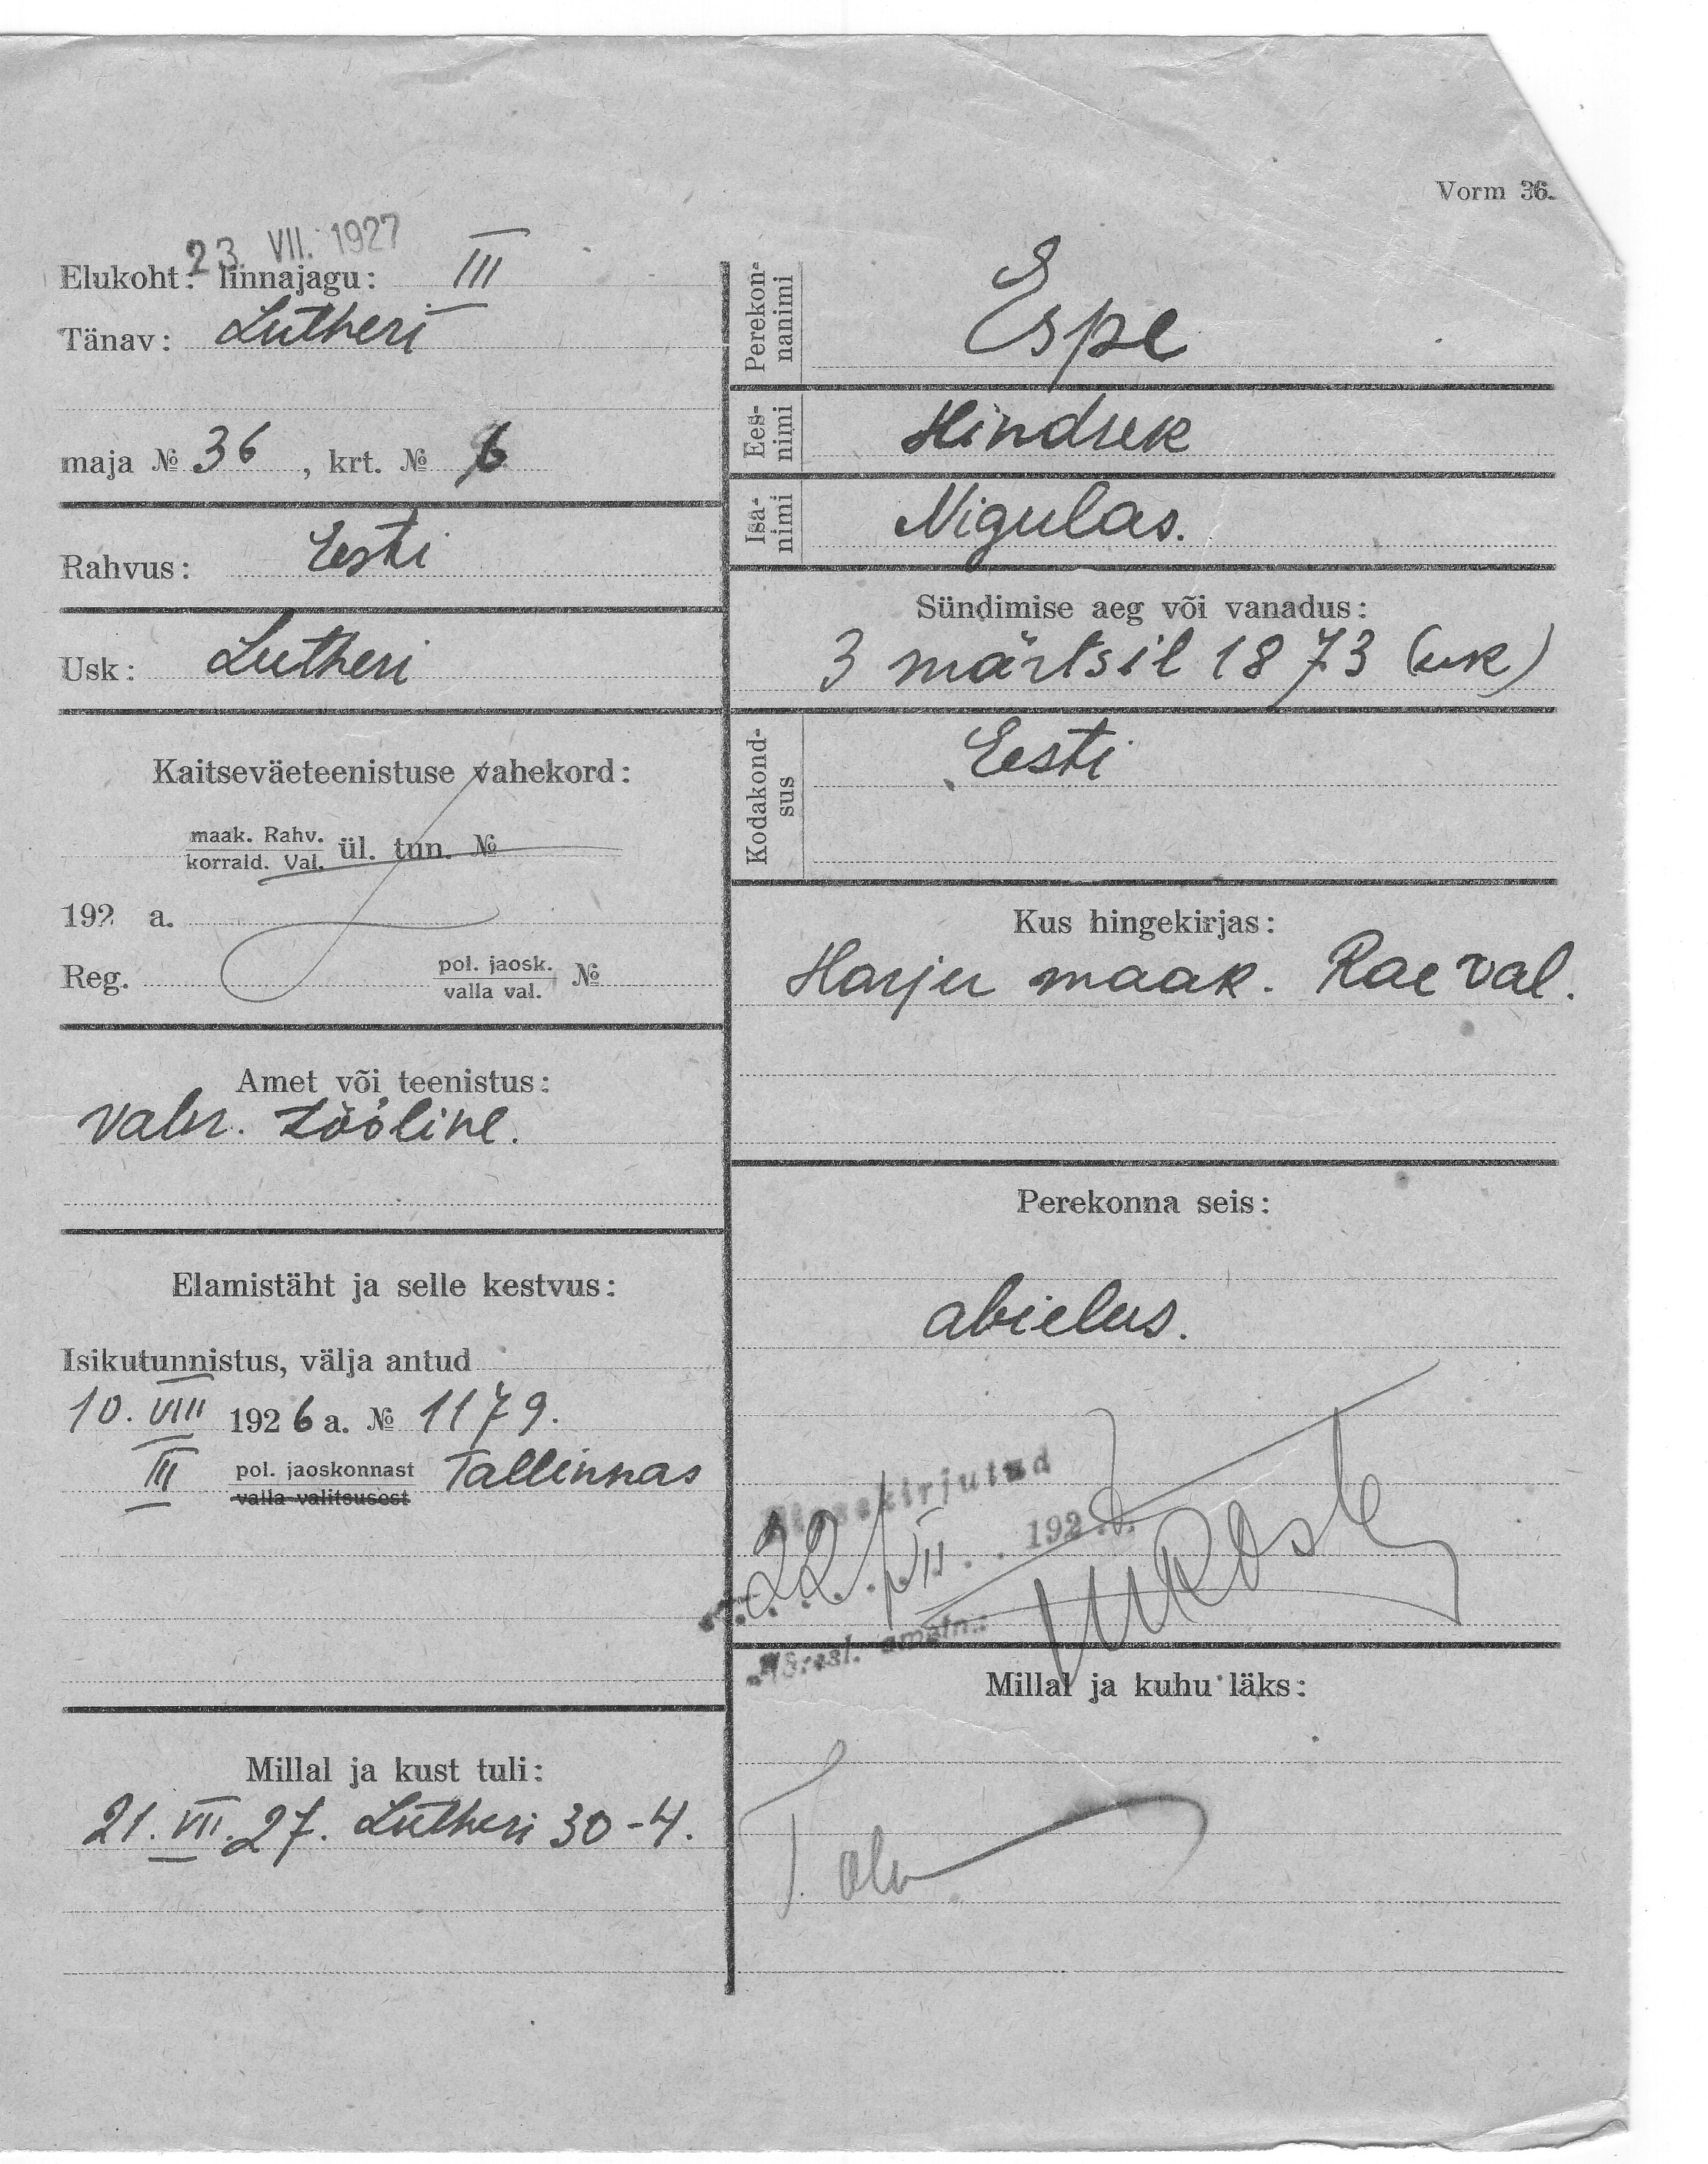 Vorm 36.
23. VII. 1927
Elukoht: linnajagu: III
Tänav: Lutheri
maja № 36, krt. № 6
Rahvus: Eesti
Usk: Lutheri
Kaitseväeteenistuse vahekord:
maak. Rahv.
korrald. Val. ül. tun. №
192 a.
Reg. pol. jaosk.
valla val. №
Amet või teenistus:
tööline.
Elamistäht ja selle kestvus:
Isikutunnistus, välja antud
10. VIII 1926 a. № 1179.
III pol. jaoskonnast Tallinnas
valla valitsusest
Millal ja kust tuli:
21. VII. 27. Lutheri 30-4.
Perekon-
nanimi
Espe
Ees-
nimi
Hindrek
Isa-
nimi
Nigulas.
Sündimise aeg või vanadus:
3 märtsil 1873 (uk)
Kodakond-
sus
Eesti
Kus hingekirjas:
Harju maak. Rae val.
Perekonna seis:
abielus.
Sissekirjutud
22. VII 192
ametn.:
Millal ja kuhu läks: